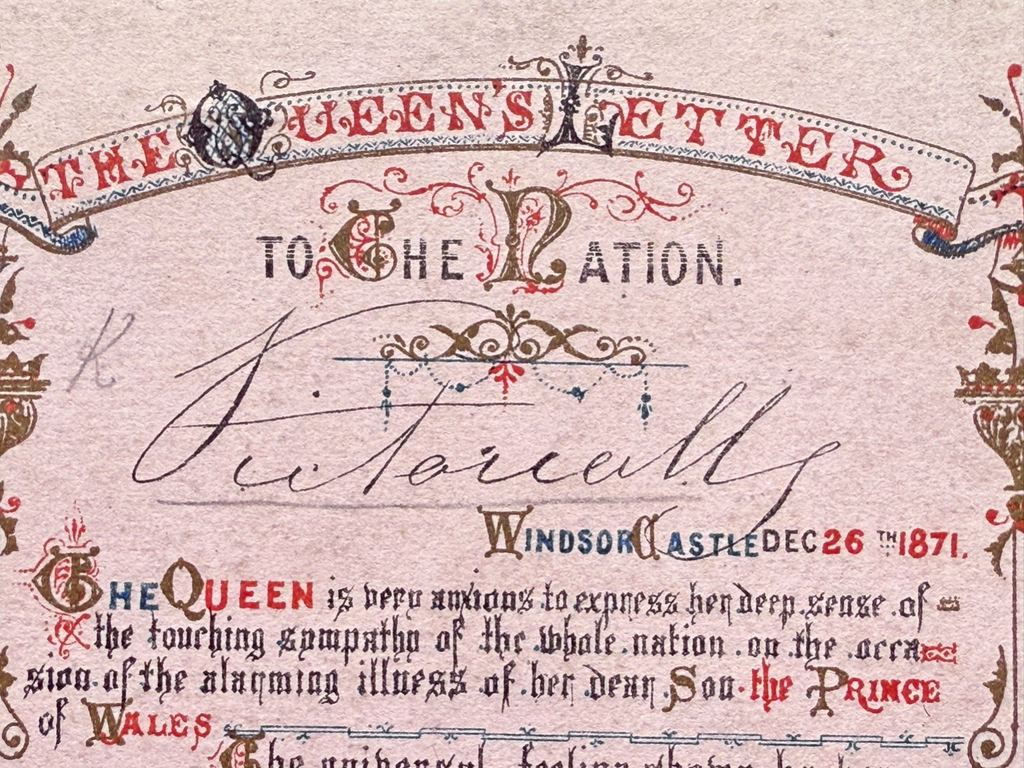 THE QUEEN'S LETTER
TO THE NATION.
K
Victoria
WINDSOR CASTLE DEC 26TH 1871.
THE QUEEN is very anxious to express her deep sense of
the touching sympathy of the whole nation on the occa
sion of the alarming illness of her dear Son the PRINCE
of WALES
The universal feeling shown by her